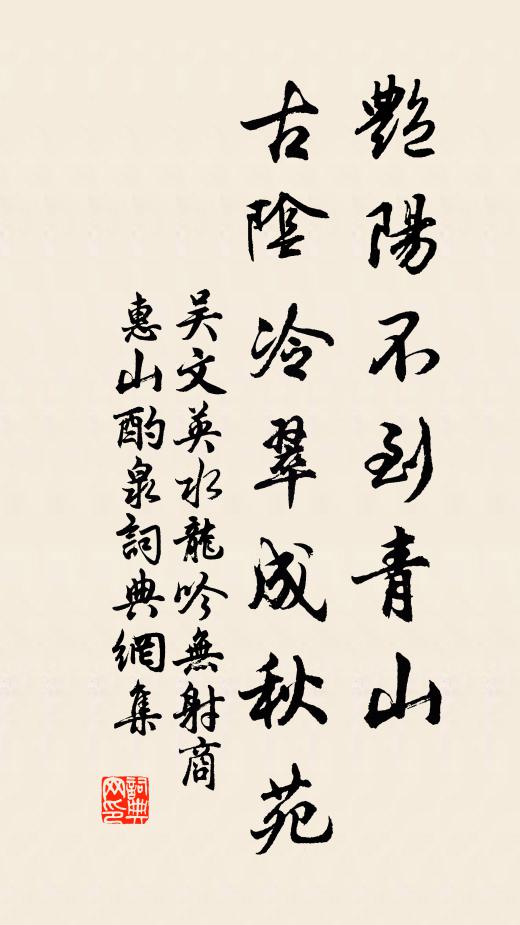 艷陽不到青山
古陰冷翠成秋苑
吴文英水龍吟無射商
惠山酌泉詞典網集
詞典網印